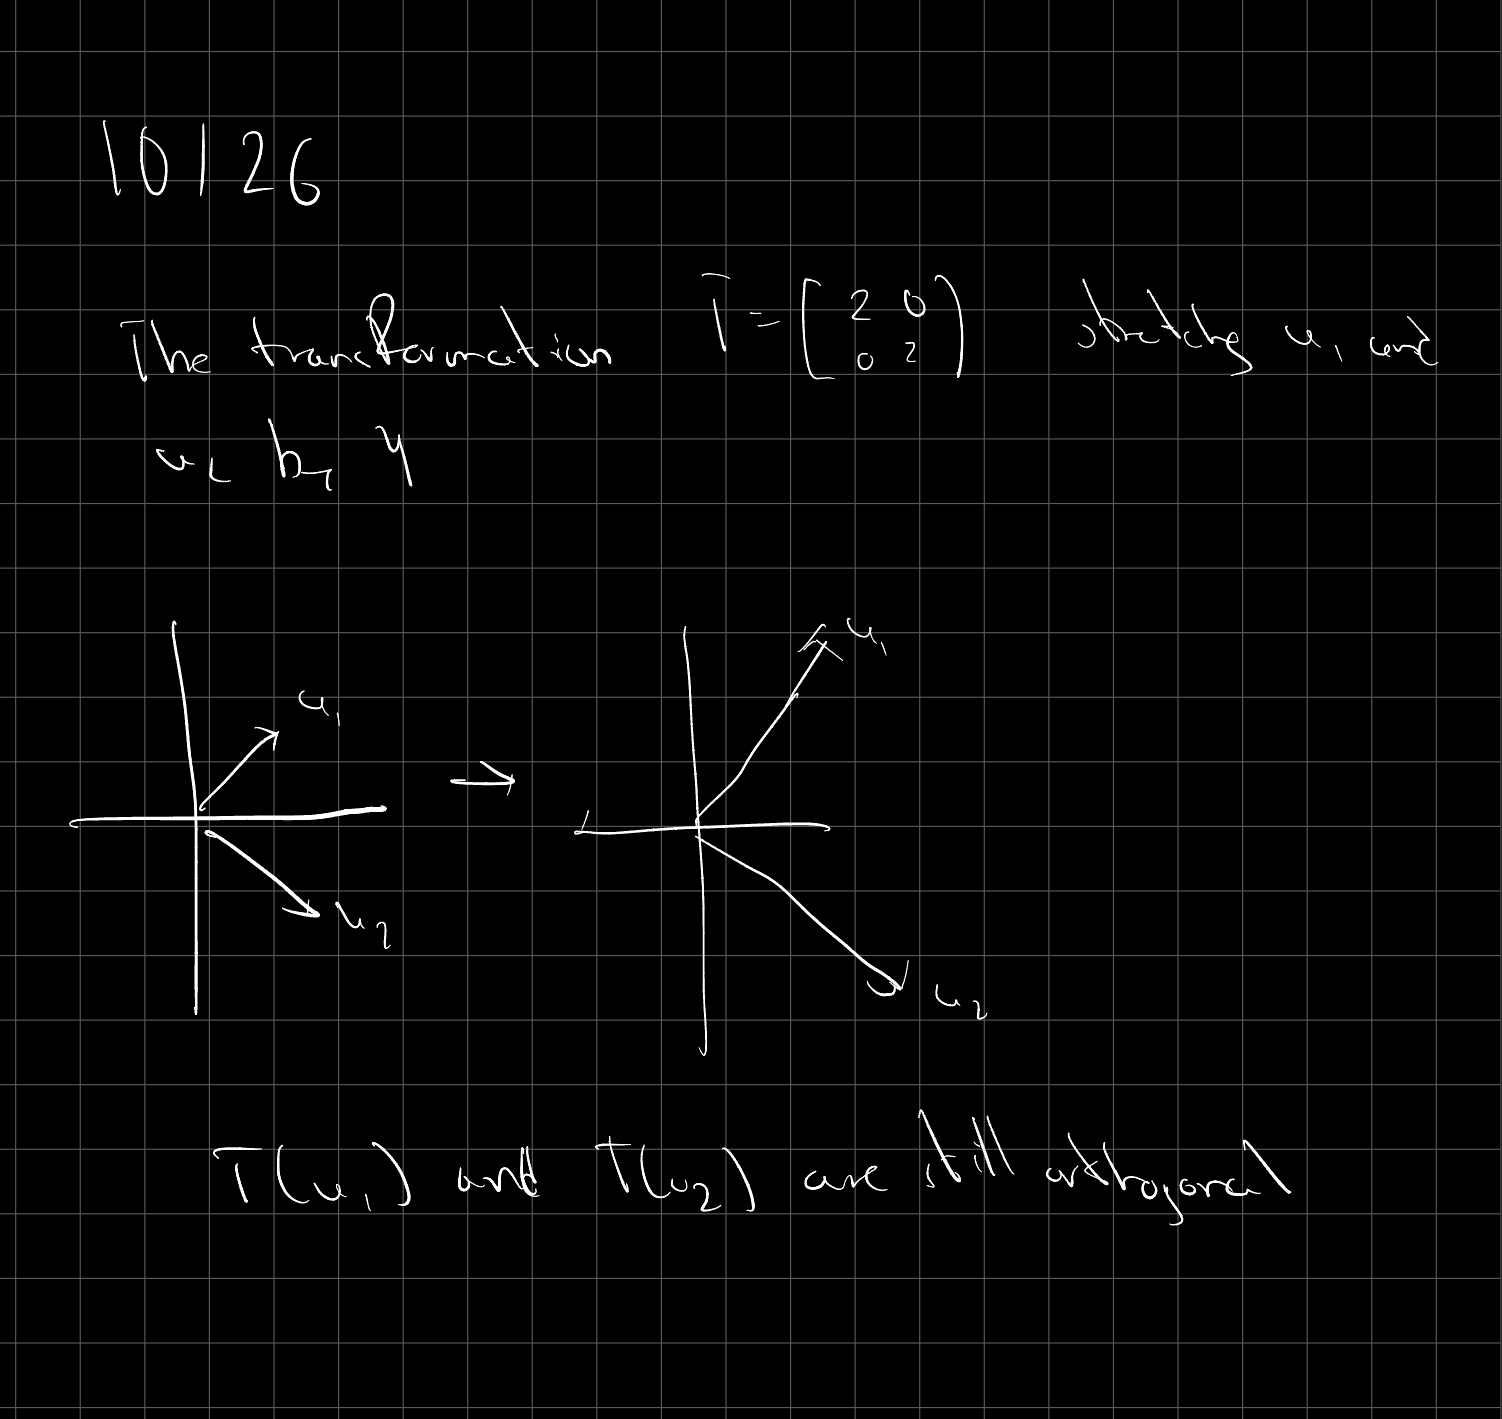 10/26
The transformation T = [2 0 0 2] stretches u1 and
u2 by 4
u1
u2
→
u1
u2
T(u1) and T(u2) are still orthogonal